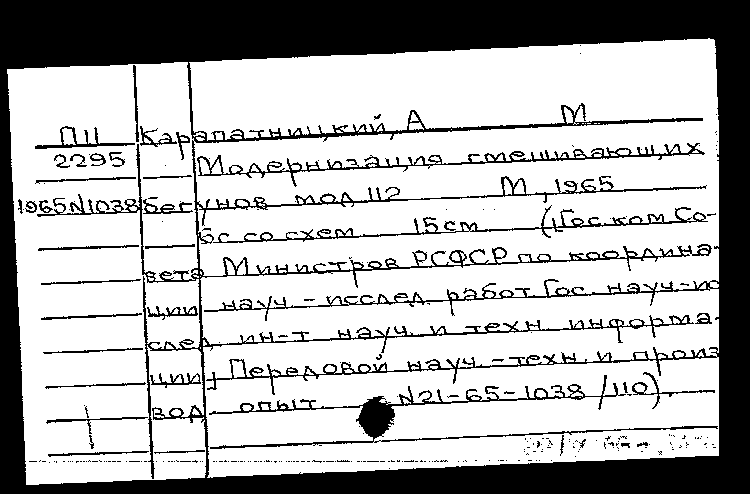 П11 Карапатницкий, А М
2295 Модернизация смешивающих
1965N1038 бегунов мод 112 М, 1965
6с со схем 15см ([Гос ком Со-
вета Министров РСФСР по координа-
ции науч-исслед. работ Гос. науч-ис
след ин-т науч. и техн. информа-
ции] Передовой науч.-техн. и произ
вод опыт N21-65-1038/110).